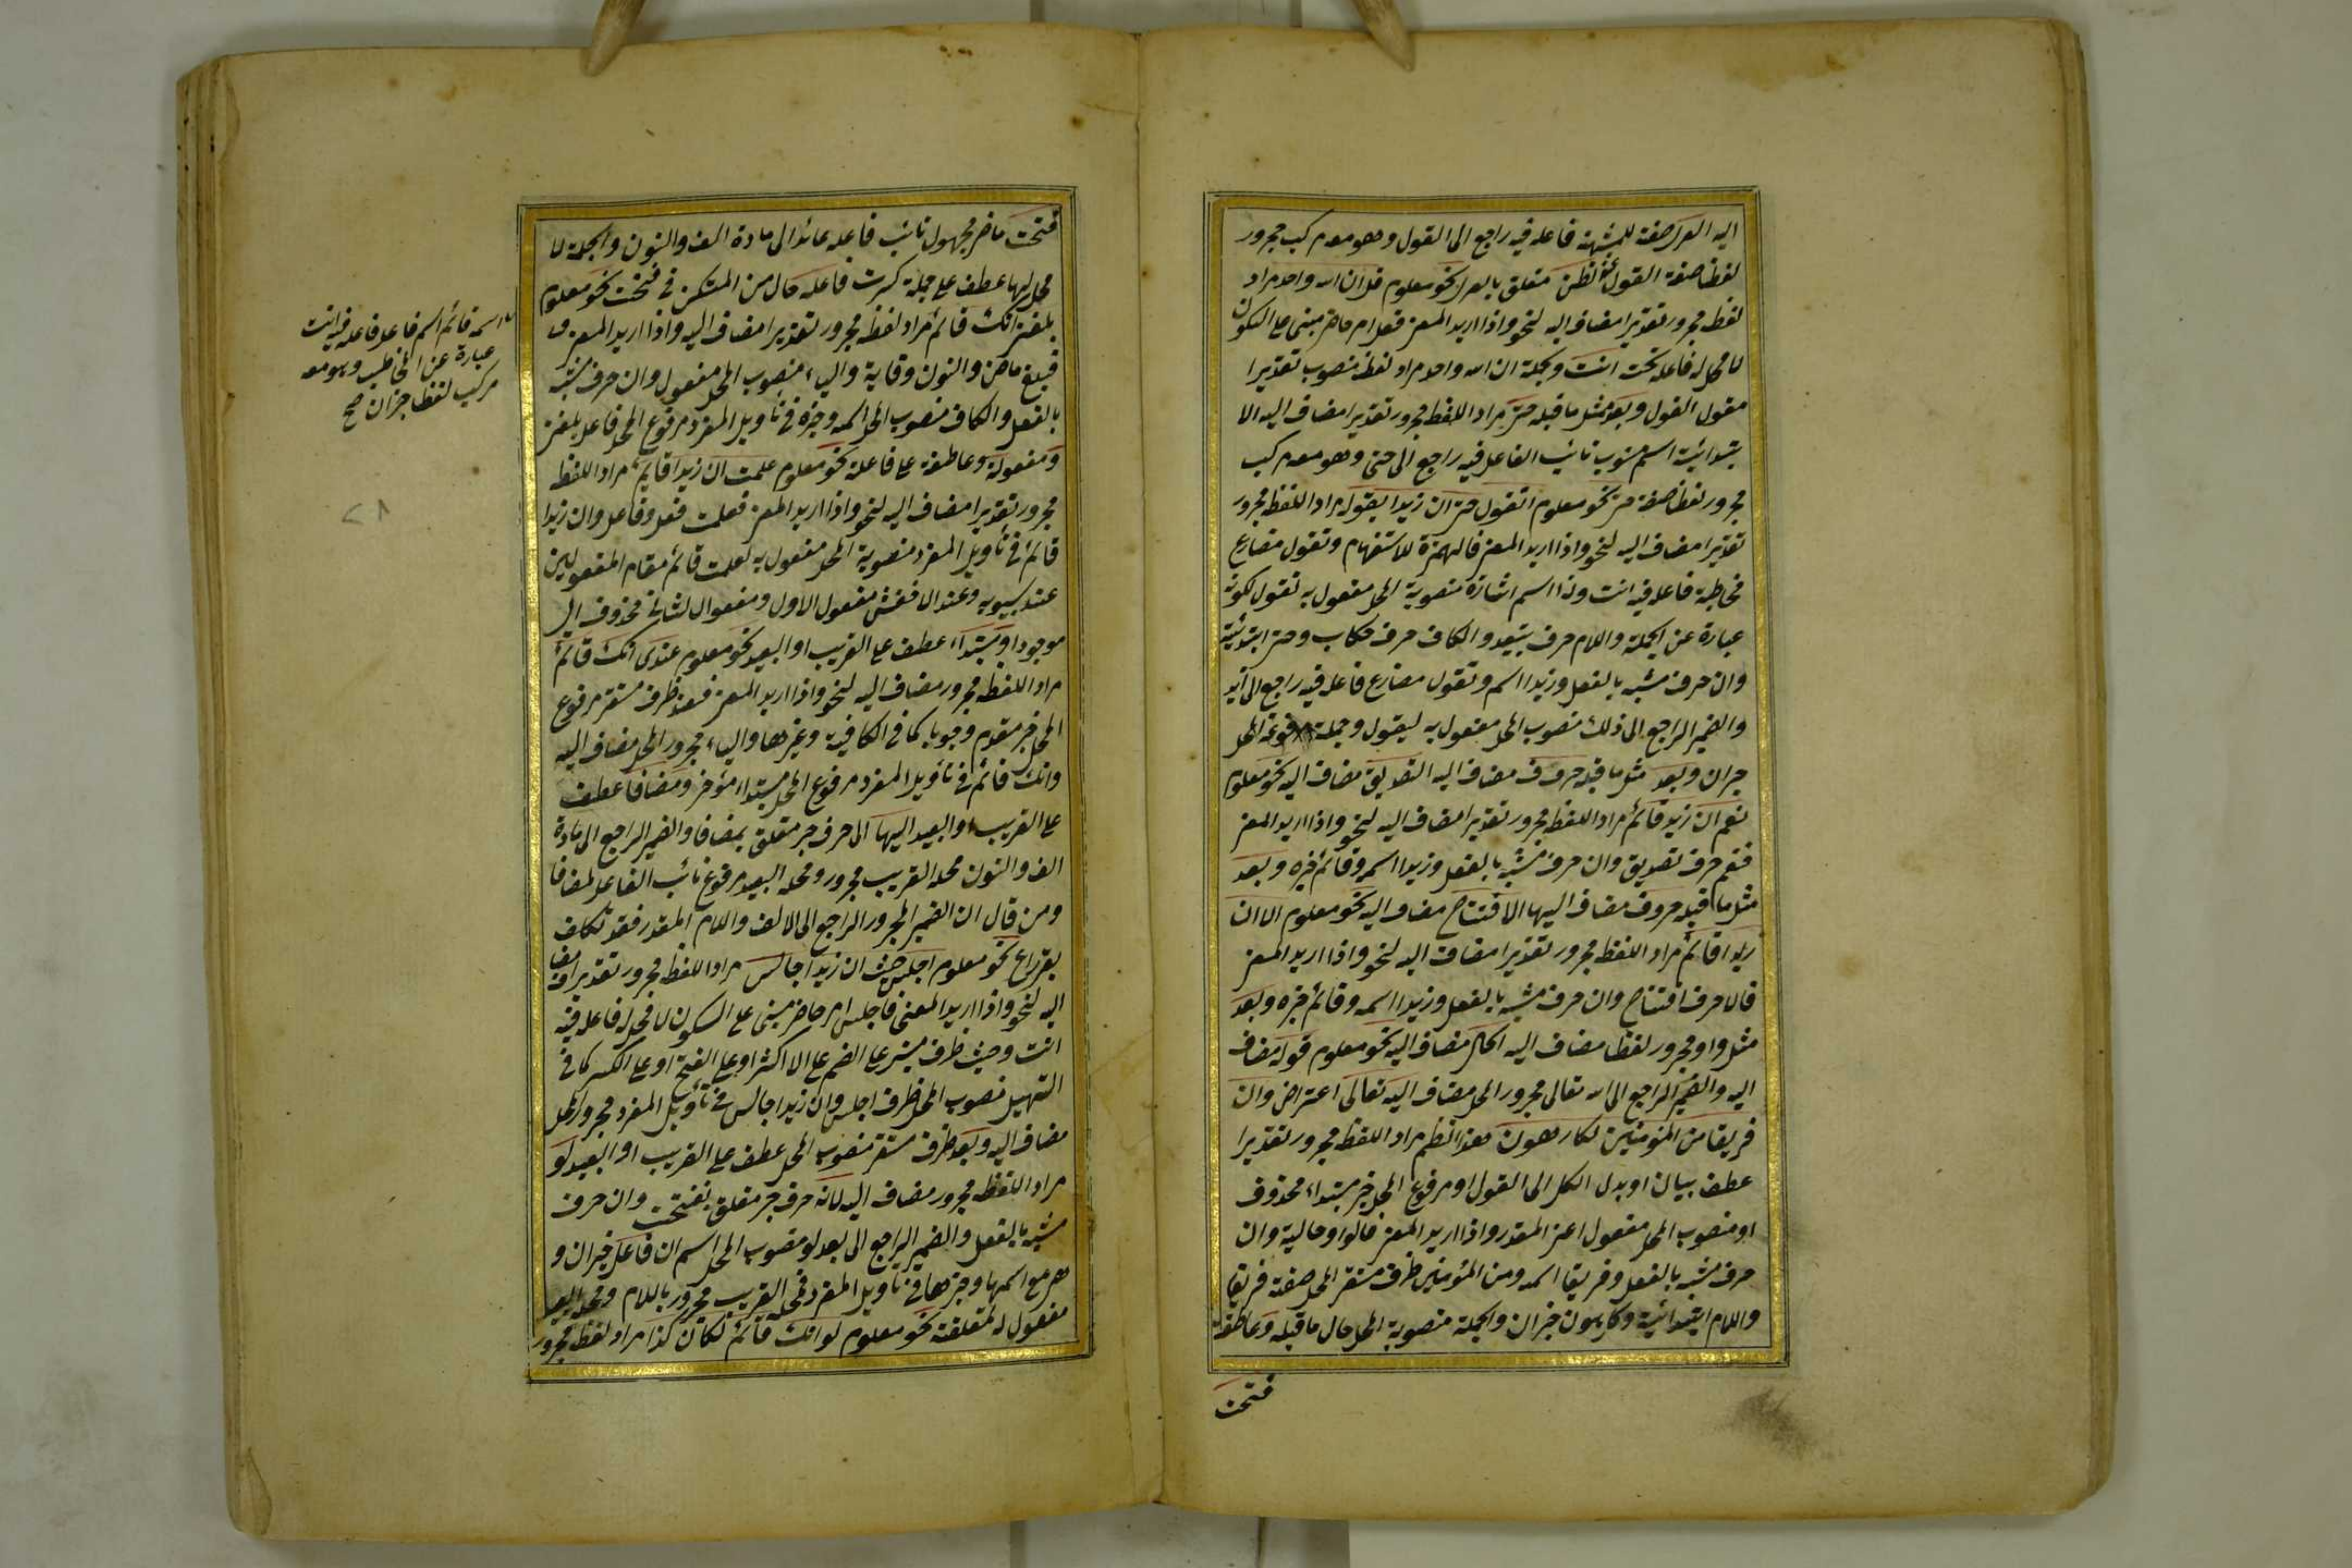 اليه العرى صفة للمشبهة فاعله فيه راجع الى القول وهو معه مركب مجرور
لفظا صفة القول لظن متعلق بالعرى نحو معلوم قل ان الله واحد مراد
لفظه مجرور تقديرا مضاف اليه لنحو واذا اريد المعنى فقل امر حاضر مبنى على السكون
لا محل له فاعله تحت انت وجملة ان الله واحد مراد لفظه منصوب تقديرا
مقول القول وبعد مثل ما قبله حتى مراد اللفظ مجرور تقديرا مضاف اليه الا
بتدائية اسم منسوب نائب الفاعل فيه راجع الى حتى وهو معه مركب
مجرور لفظا صفة حتى نحو معلوم اتقول حتى ان زيدا يقوله مراد اللفظ مجرور
تقديرا مضاف اليه لنحو واذا اريد المعنى فالهمزة للاستفهام وتقول مضارع
مخاطبة فاعله فيه انت وذا اسم اشارة منصوبة المحل مفعول به تقول لكونه
عبارة عن الجملة واللام حرف تبعيد والكاف حرف خطاب وحتى ابتدائية
وان حرف مشبه بالفعل وزيدا اسم وتقول مضارع فاعله فيه راجع الى زيد
والضمير الراجع الى ذلك منصوب المحل مفعول به ليقول وجملة مرفوعة المحل
خبر ان وبعد مثل ما قبله حروف مضاف اليه التصديق مضاف اليه نحو معلوم
نعم ان زيد قائم مراد اللفظ مجرور تقديرا مضاف اليه لنحو واذا اريد المعنى
فنعم حرف تصديق وان حرف مشبه بالفعل وزيدا اسمه وقائم خبره وبعد
مثل ما قبله حروف مضاف اليها الافتتاح مضاف اليه نحو معلوم الا ان
زيدا قائم مراد اللفظ مجرور تقديرا مضاف اليه لنحو واذا اريد المعنى
فالا حرف افتتاح وان حرف مشبه بالفعل وزيدا اسمه وقائم خبره وبعد
مثل واو مجرور لفظا مضاف اليه الحال مضاف اليه نحو معلوم قوله مضاف
اليه والضمير الراجع الى الله تعالى مجرور المحل مضاف اليه تعالى اعتراض وان
فريقا من المؤمنين لكارهون هذا النظم مراد اللفظ مجرور تقديرا
عطف بيان او بدل الكل الى القول او مرفوع المحل خبر مبتداء محذوف
او منصوب المحل مفعول اعنى المقدر واذا اريد المعنى فالواو حالية وان
حرف مشبه بالفعل وفريقا اسمه ومن المؤمنين ظرف مستقر المحل صفة فريقا
واللام ابتدائية وكارهون خبر ان والجملة منصوبة المحل حال ما قبله وعاطفة
فتحت
فتحت ماض مجهول نائب فاعله عائد الى مادة الف والنون والجملة لا
محل لها عطف على جملة كسرت فاعله حال من المستكن فى فتحت نحو معلوم
بلغنى انك قائم مراد لفظه مجرور تقديرا مضاف اليه واذا اريد المعنى
فبلغ ماض والنون وقاية والياء منصوب المحل مفعول وان حرف مشبه
بالفعل والكاف منصوب المحل اسمه وخبره فى تأويل المفرد مرفوع المحل فاعل بلغنى
ومفعولة وعاطفة على فاعلة نحو معلوم علمت ان زيدا قائم مراد اللفظ
مجرور تقديرا مضاف اليه لنحو واذا اريد المعنى فعلمت فعل وفاعل وان زيدا
قائم فى تأويل المفرد منصوبة المحل مفعول به لعلمت قائم مقام المفعولين
عند سيبويه وعند الاخفش مفعول الاول ومفعول الثانى محذوف اى
موجودا ومبتداء عطف على القريب او البعيد نحو معلوم عندى انك قائم
مراد اللفظ مجرور مضاف اليه لنحو واذا اريد المعنى فعند ظرف مستقر مرفوع
المحل خبر مقدم وجوبا كما فى الكافية وغيرها والياء مجرور المحل مضاف اليه
وانك قائم فى تأويل المفرد مرفوع المحل مبتداء مؤخر ومضافا عطف
على القريب او البعيد اليها الى حرف جر متعلق بمضافا والضمير الراجع الى مادة
الف والنون محله القريب مجرور ومحله البعيد مرفوع نائب الفاعل لمضافا
ومن قال ان الضمير المجرور الراجع الى الالف واللام المقدر فقد تكلف
نحو معلوم اجلس حيث ان زيدا جالس مراد اللفظ مجرور تقديرا مضاف
اليه لنحو واذا اريد المعنى فاجلس امر حاضر مبنى على السكون لا محل له فاعله فيه
انت وحيث ظرف مبنى على الضم على الاكثر او على الفتح او على الكسر كما فى
التسهيل منصوب المحل ظرف اجلس وان زيدا جالس فى تأويل المفرد مجرور المحل
مضاف اليه وبعد ظرف مستقر منصوب المحل عطف على القريب او البعيد لو
مراد اللفظ مجرور مضاف اليه لانه حرف جر متعلق بفتحت وان حرف
مشبه بالفعل والضمير الراجع الى بعد لو منصوب المحل اسم ان فاعل خبر ان و
هى مع اسمها وخبرها فى تأويل المفرد فمحله القريب مجرور باللام ومحله البعيد
مفعول له لمتعلقه نحو معلوم لو انك قائم لكان كذا مراد لفظه مجرور
اسمه قائم اسم فاعل فاعله فيه انت
عبارة عن المخاطب وهو معه
مركب لفظا خبر ان صح
٢٨